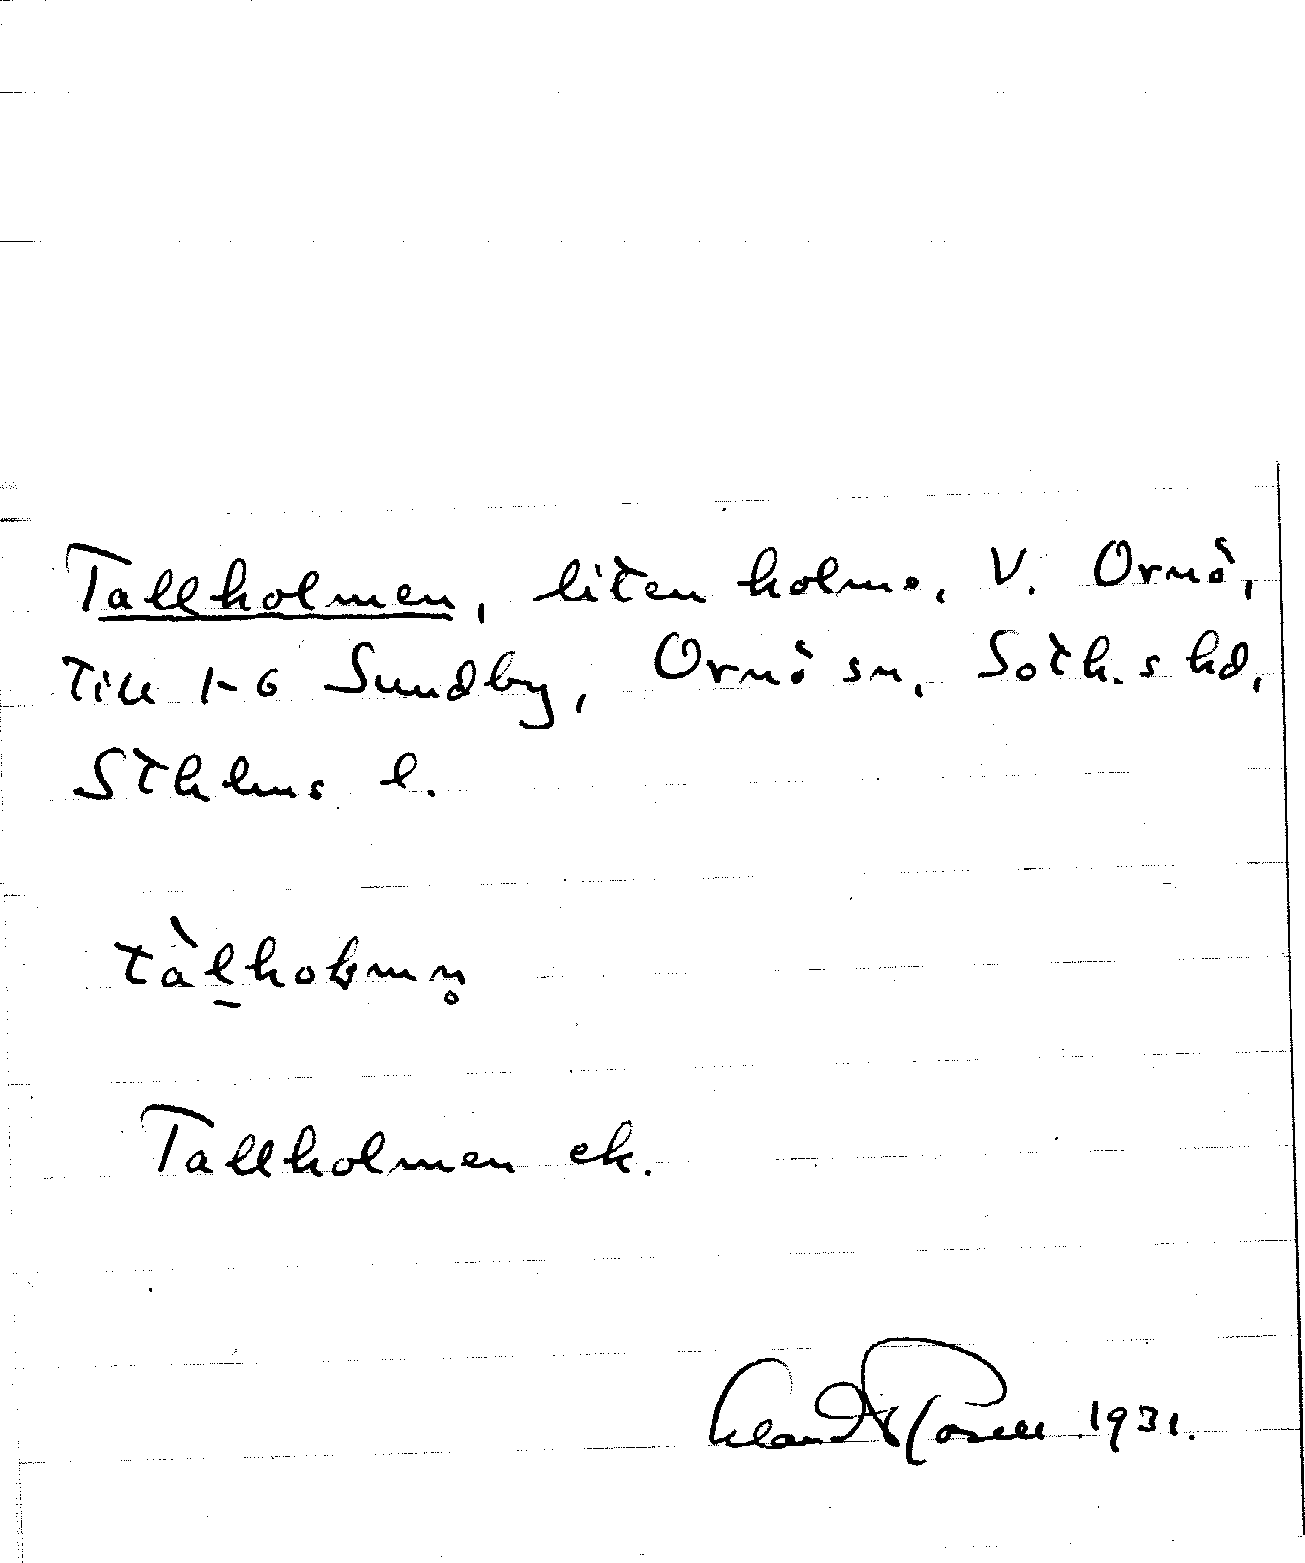 Tallholmen, liten holme, V. Ornö,
till 1-6 Sundby, Ornö sn, Soth.s hd,
Sthlms l.
tàl̲holmn̥
Tallholmen ek.
Erland Rosell 1931.